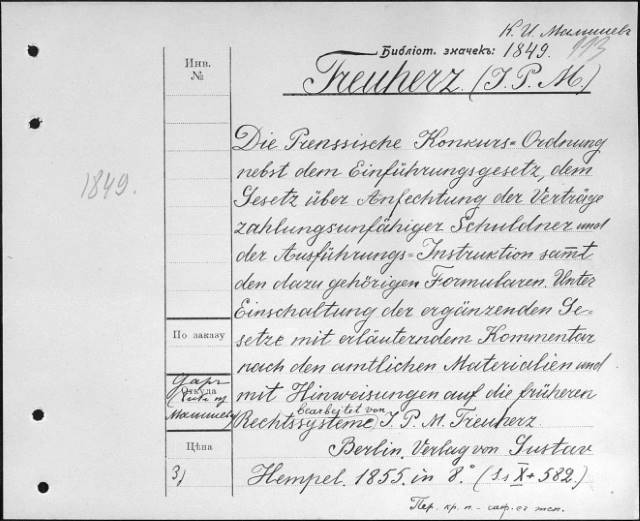 К. И. Малышев
Библіот. значекъ: 1849. 993
Treuherz. (J. P. M.)
Инв.
№
Die Preussische Konkurs=Ordnung
nebst dem Einführungsgesetz, dem
Gesetz über Anfechtung der Verträge
1849.
zahlungsunfähiger Schuldner und
der Ausführungs=Instruktion sammt
den dazu gehörigen Formularen. Unter
Einschaltung der ergänzenden Ge=
setze mit erläuterndem Kommentar
По заказу
nach den amtlichen Materialien und
Откуда
mit Hinweisungen auf die früheren
Rechtssysteme bearbeitet von J. P. M. Treuherz.
Berlin. Verlag von Gustav
Цѣна
3)
Hempel. 1855. in 8.° (Ss X + 582.)
Пер. кр. п.